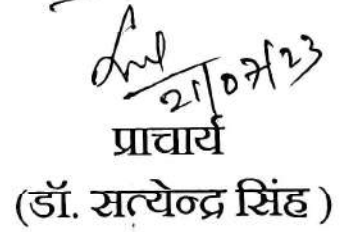 21/07/23
प्राचार्य
(डॉ. सत्येन्द्र सिंह )